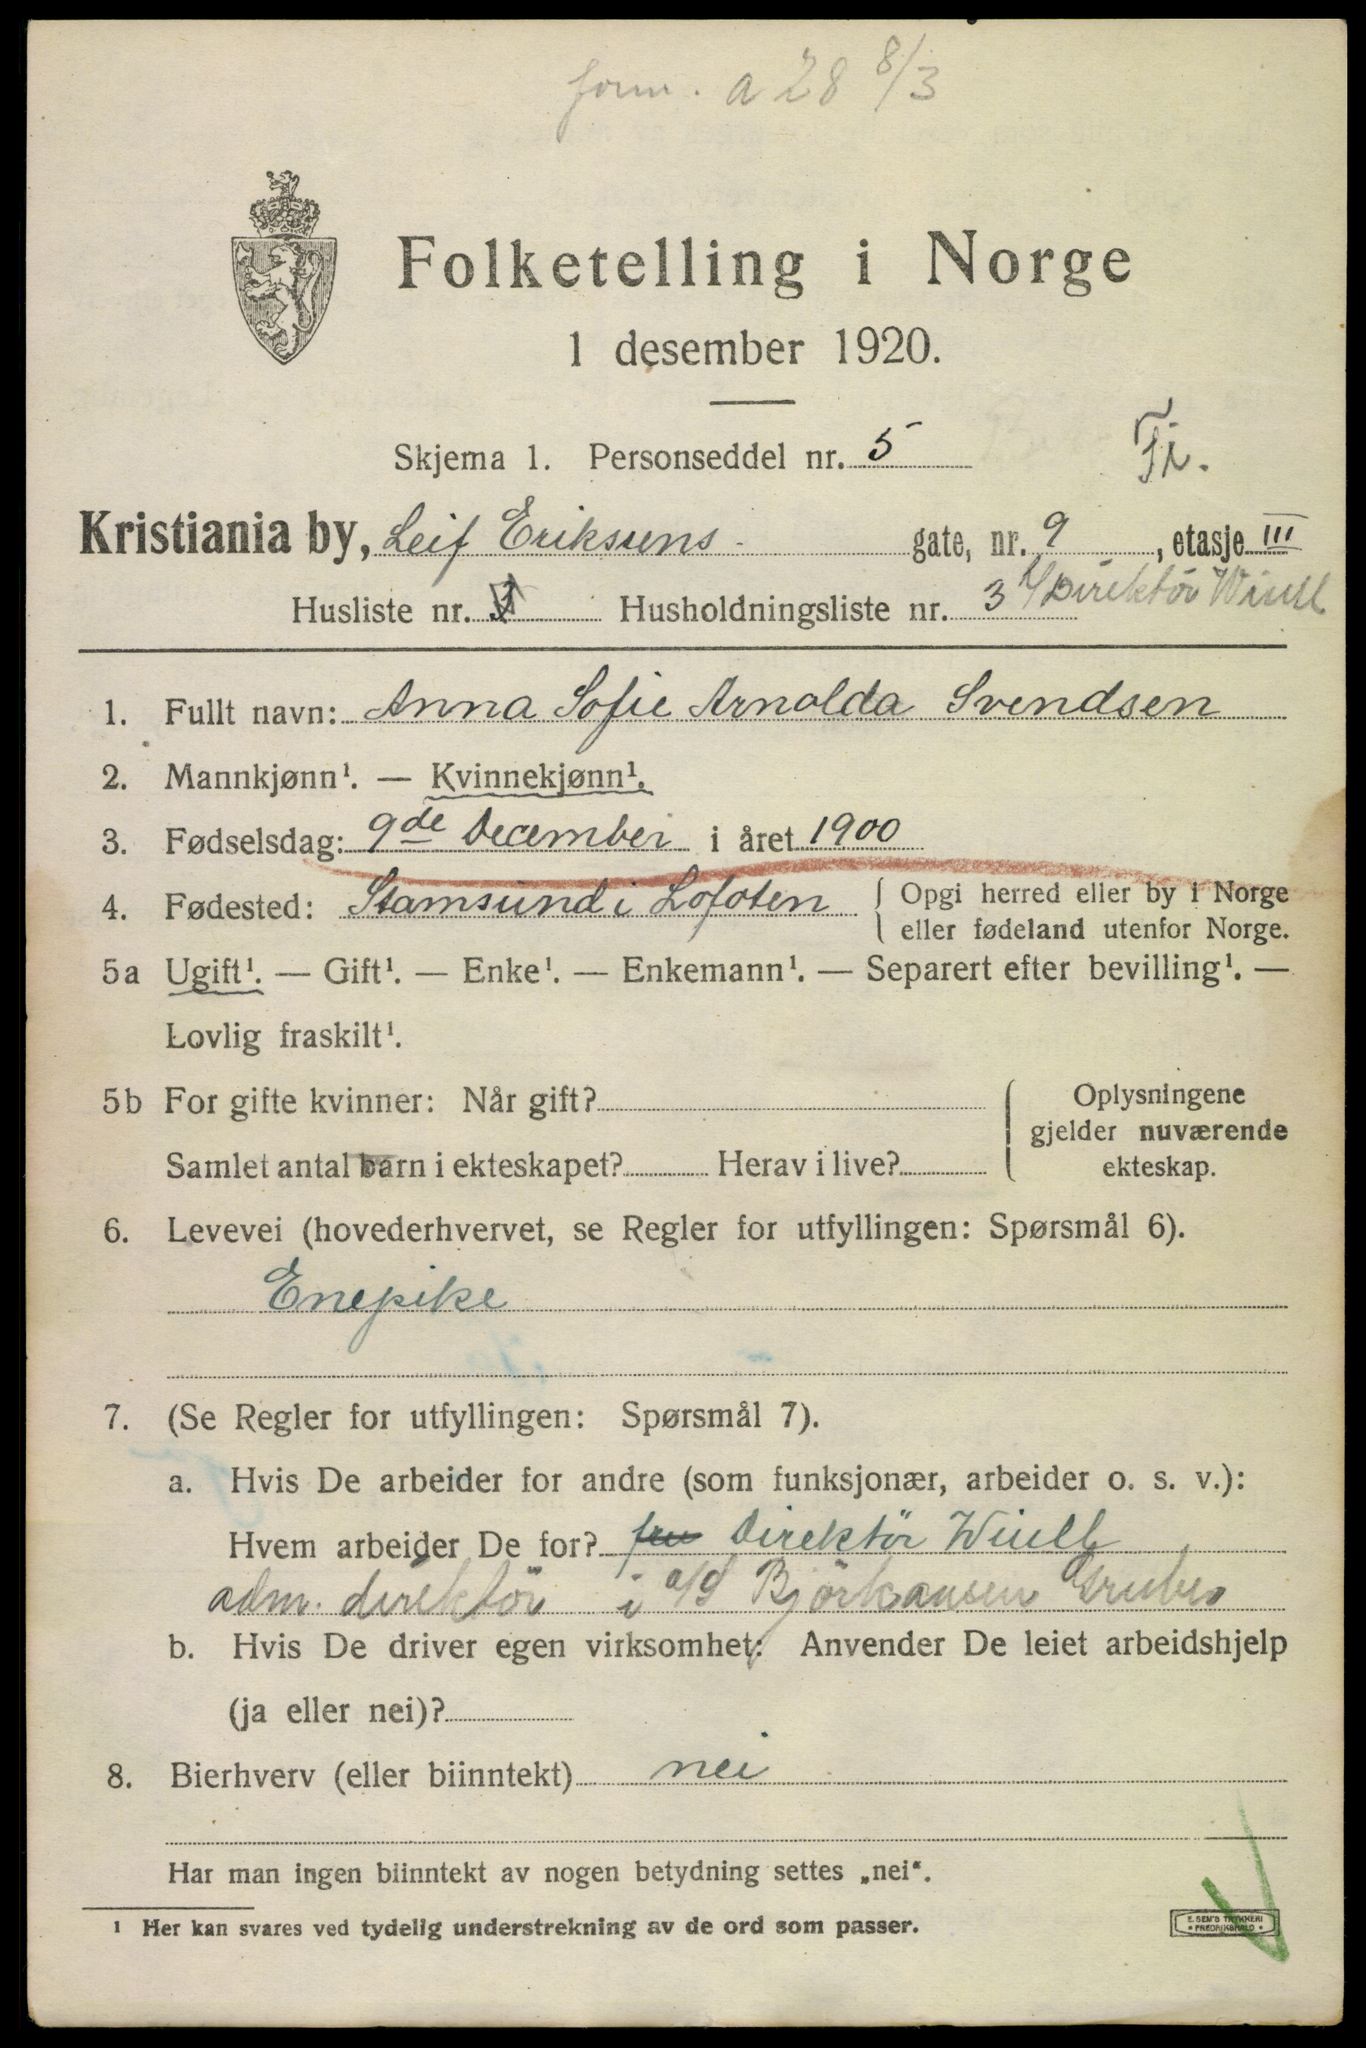 form. a 28 8/3
Folketelling i Norge
1 desember 1920.
Skjema 1. Personseddel nr. 5
Kristiania by, Leif Eriksens gate, nr. 9, etasje III
Husliste nr. Husholdningsliste nr. 3 Direktør
1. Fullt navn: Anna Sofie Arnolda Svendsen
2. Mannkjønn¹. — Kvinnekjønn¹.
3. Fødselsdag: 9de December i året 1900
4. Fødested: Stamsund i Lofoten { Opgi herred eller by i Norge
eller fødeland utenfor Norge.
5a Ugift¹. — Gift¹. — Enke¹. — Enkemann¹. — Separert efter bevilling¹. —
Lovlig fraskilt¹.
5b For gifte kvinner: Når gift?
Samlet antal barn i ekteskapet? Herav i live?
Oplysningene
gjelder nuværende
ekteskap.
6. Levevei (hovederhvervet, se Regler for utfyllingen: Spørsmål 6).
Enepike
7. (Se Regler for utfyllingen: Spørsmål 7).
a. Hvis De arbeider for andre (som funksjonær, arbeider o. s. v.):
Hvem arbeider De for? fru Direktör
adm. direktör i a/s Gruber
b. Hvis De driver egen virksomhet: Anvender De leiet arbeidshjelp
(ja eller nei)?
8. Bierhverv (eller biinntekt) nei
Har man ingen biinntekt av nogen betydning settes „nei“.
¹ Her kan svares ved tydelig understrekning av de ord som passer.
E. SEM'S TRYKKERI
FREDRIKSHALD